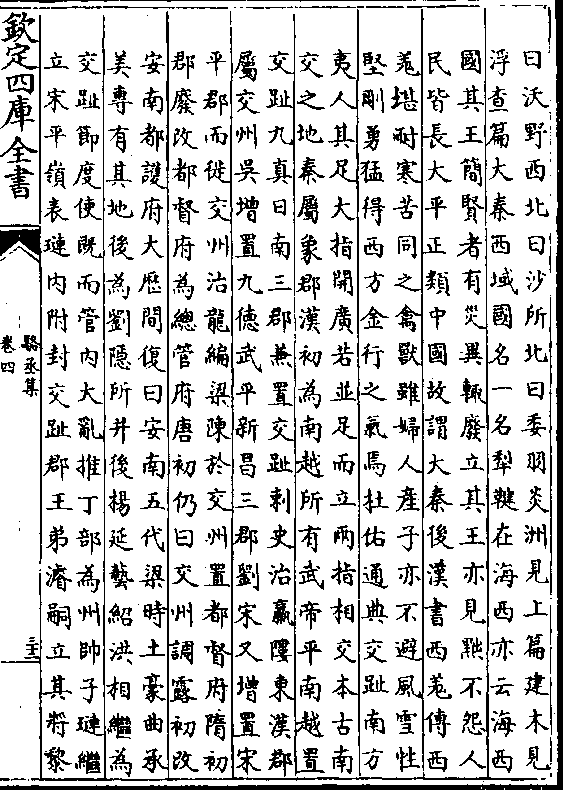 曰沃野西北曰沙所北曰委羽炎洲見上篇建木見
浮查篇大秦西域國名一名犁鞬在海西亦云海西
國其王簡賢者有災異輙廢立其王亦見黜不怨人
民皆長大平正類中國故謂大秦後漢書西羌傳西
羌堪耐寒苦同之禽獸雖婦人産子亦不避風雪性
堅剛勇猛得西方金行之氣焉杜佑通典交趾南方
夷人其足大指開廣若並足而立兩指相交本古南
交之地秦屬象郡漢初為南越所有武帝平南越置
交趾九真日南三郡兼置交趾刺史治羸𨻻東漢郡
屬交州吳増置九德武平新昌三郡劉宋又増置宋
平郡而徙交州治龍編梁陳於交州置都督府隋初
郡廢改都督府為總管府唐初仍曰交州調露初改
安南都護府大歴間復曰安南五代梁時土豪曲承
美專有其地後為劉隠所并後楊延藝紹洪相繼為
交趾節度使既而管内大亂推丁部為州帥子璉繼
立宋平嶺表璉内附封交趾郡王弟濬嗣立其將黎
欽定四庫全書
駱丞集
卷四
三十二